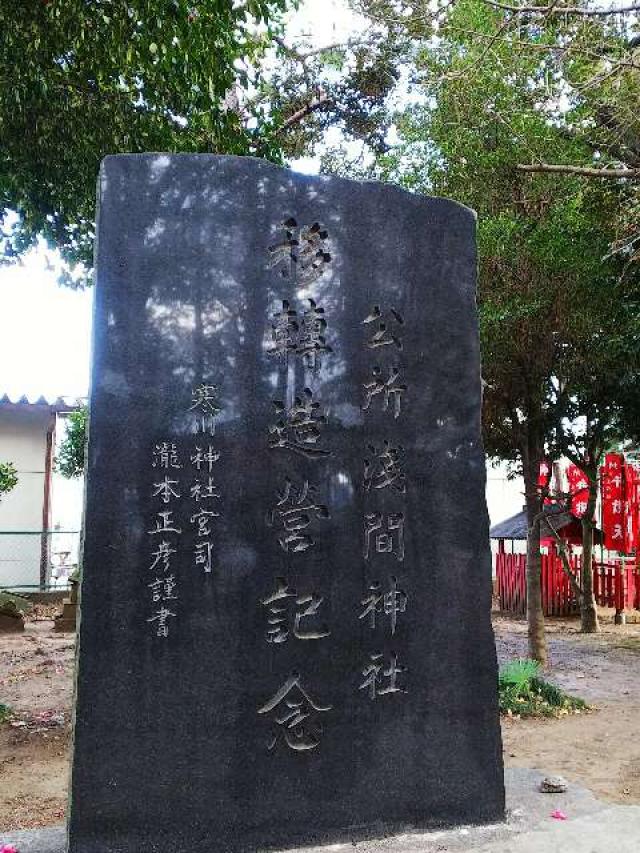 公所淺間神社
移轉造營記念
寒川神社宮司
瀧本正彦謹書